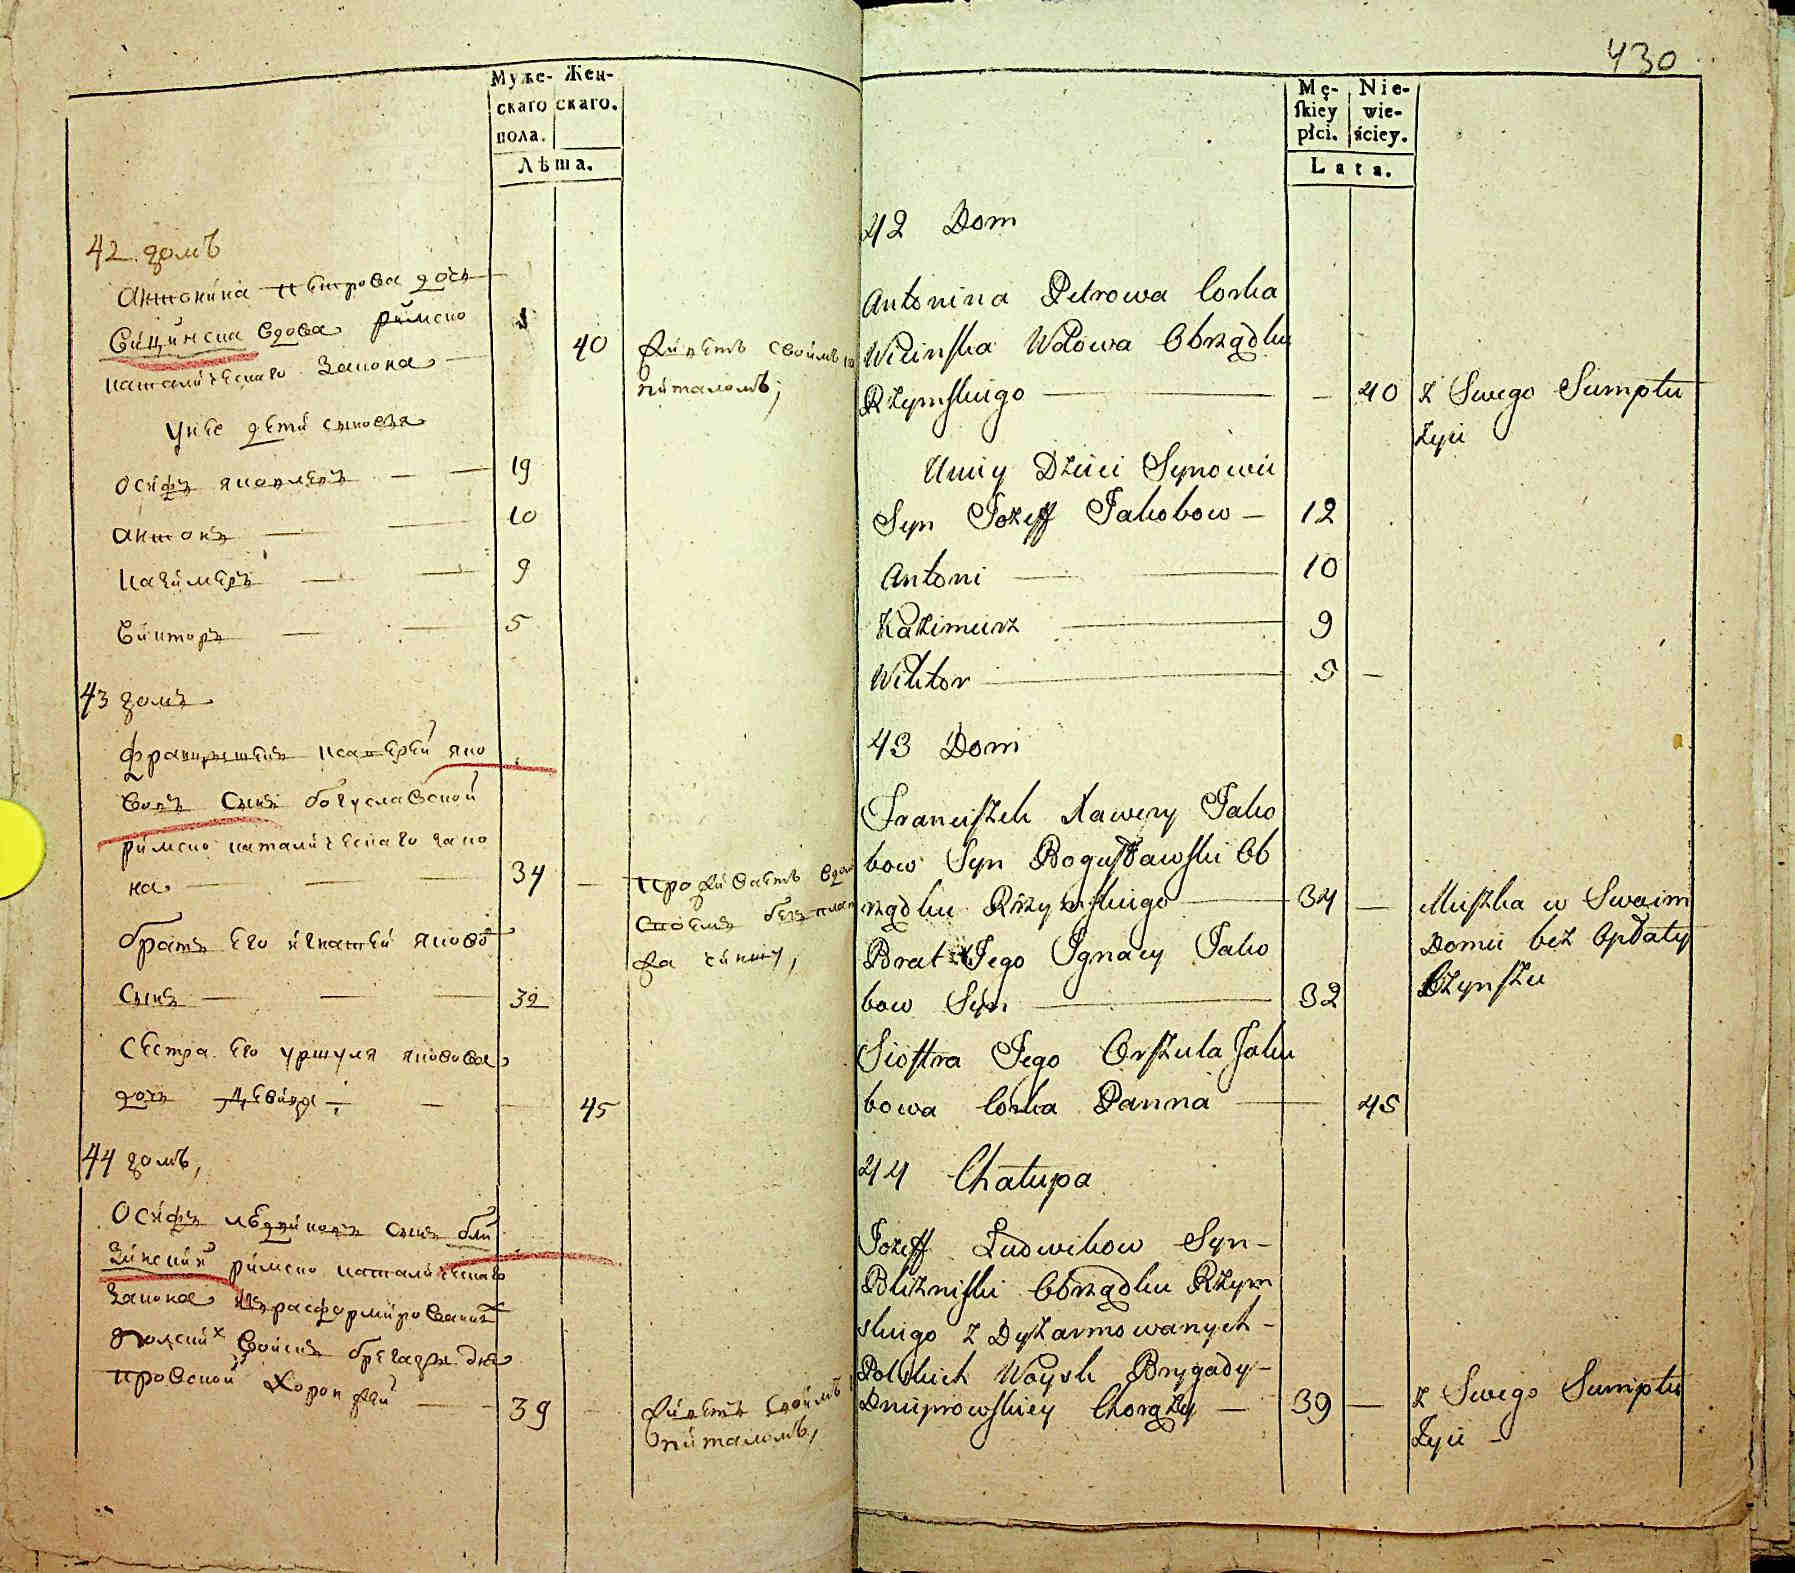 Муже- Жен-
скаго скаго.
пола.
Лѣта.
42 домъ
Антонина Петрова дочь
Вицинска вдова римско
католическаго закона 40 живетъ своимъ ка
питаломъ;
У нее дети сыновья
Осифъ Яковлевъ 19
Антонъ 10
Казимеръ 9
Викторъ 5
43 домъ
Францишекъ Ксаверий Яко
вовъ сынъ Богуславской
римско католическаго зако
на 34 проживаетъ в
без пла
жа чиншу,
братъ его Игнатей Яковов
сынъ 32
сестра его Уршуля Яковова
дочь девица 45
44 домъ,
Осифъ сынъ Бли
зинский римско католическаго
закона изъ расформированных
польских войскъ бригады дне
провской Хоронжий 39 живетъ своимъ
питаломъ,
430
Mę- Nie-
ſkiey wie-
płci. ściey.
Lata.
42 Dom
Antonina Petrowa Corka
Wicinſka Wdowa Obrządku
Rzymſkiego — 40 z Swego Sumptu
żyie
Uniey Dzieci Synowie
Syn Jozeff Jakobow — 12
Antoni 10
Kazimierz 9
Wiktor 5 —
43 Dom
Franciſzek Xawery Jako
bow Syn Boguſławſki Ob
rządku Rzymſkiego 34 — Mieſzka w Swoim
Domu bez Opłaty
Brat Jego Ignacy Jako
bow Syn 32 Czynſzu
Sioſtra Jego Orſzula Jaku
bowa Corka Panna 45
44 Chałupa
Jozeff Ludwikow Syn —
Blizniſki Obrządku Rzym
skiego z Dyzarmowanych —
Polskich Woysk Brygady —
Dnieprowſkiey Chorąży — 39 — z Swego Sumptu
żyie —